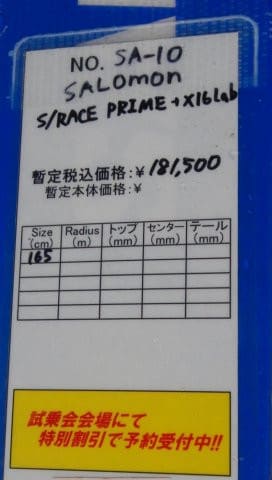 NO. SA-10
SALOMON
S/RACE PRIME + X16Lab
暫定税込価格:¥ 181,500
暫定本体価格:¥
Size (cm) Radius (m) トップ (mm) センター (mm) テール (mm)
165
試乗会会場にて
特別割引で予約受付中!!